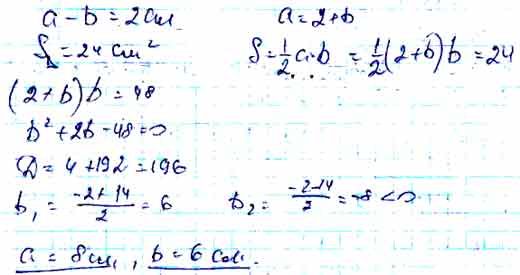 a - b = 2 см          a = 2 + b
S = 24 см²          S = 1/2 a·b = 1/2 (2+b) b = 24
(2+b) b = 48
b² + 2b - 48 = 0.
D = 4 + 192 = 196
b₁ = (-2+14)/2 = 6          b₂ = (-2-14)/2 = -8 < 0
a = 8 см, b = 6 см.